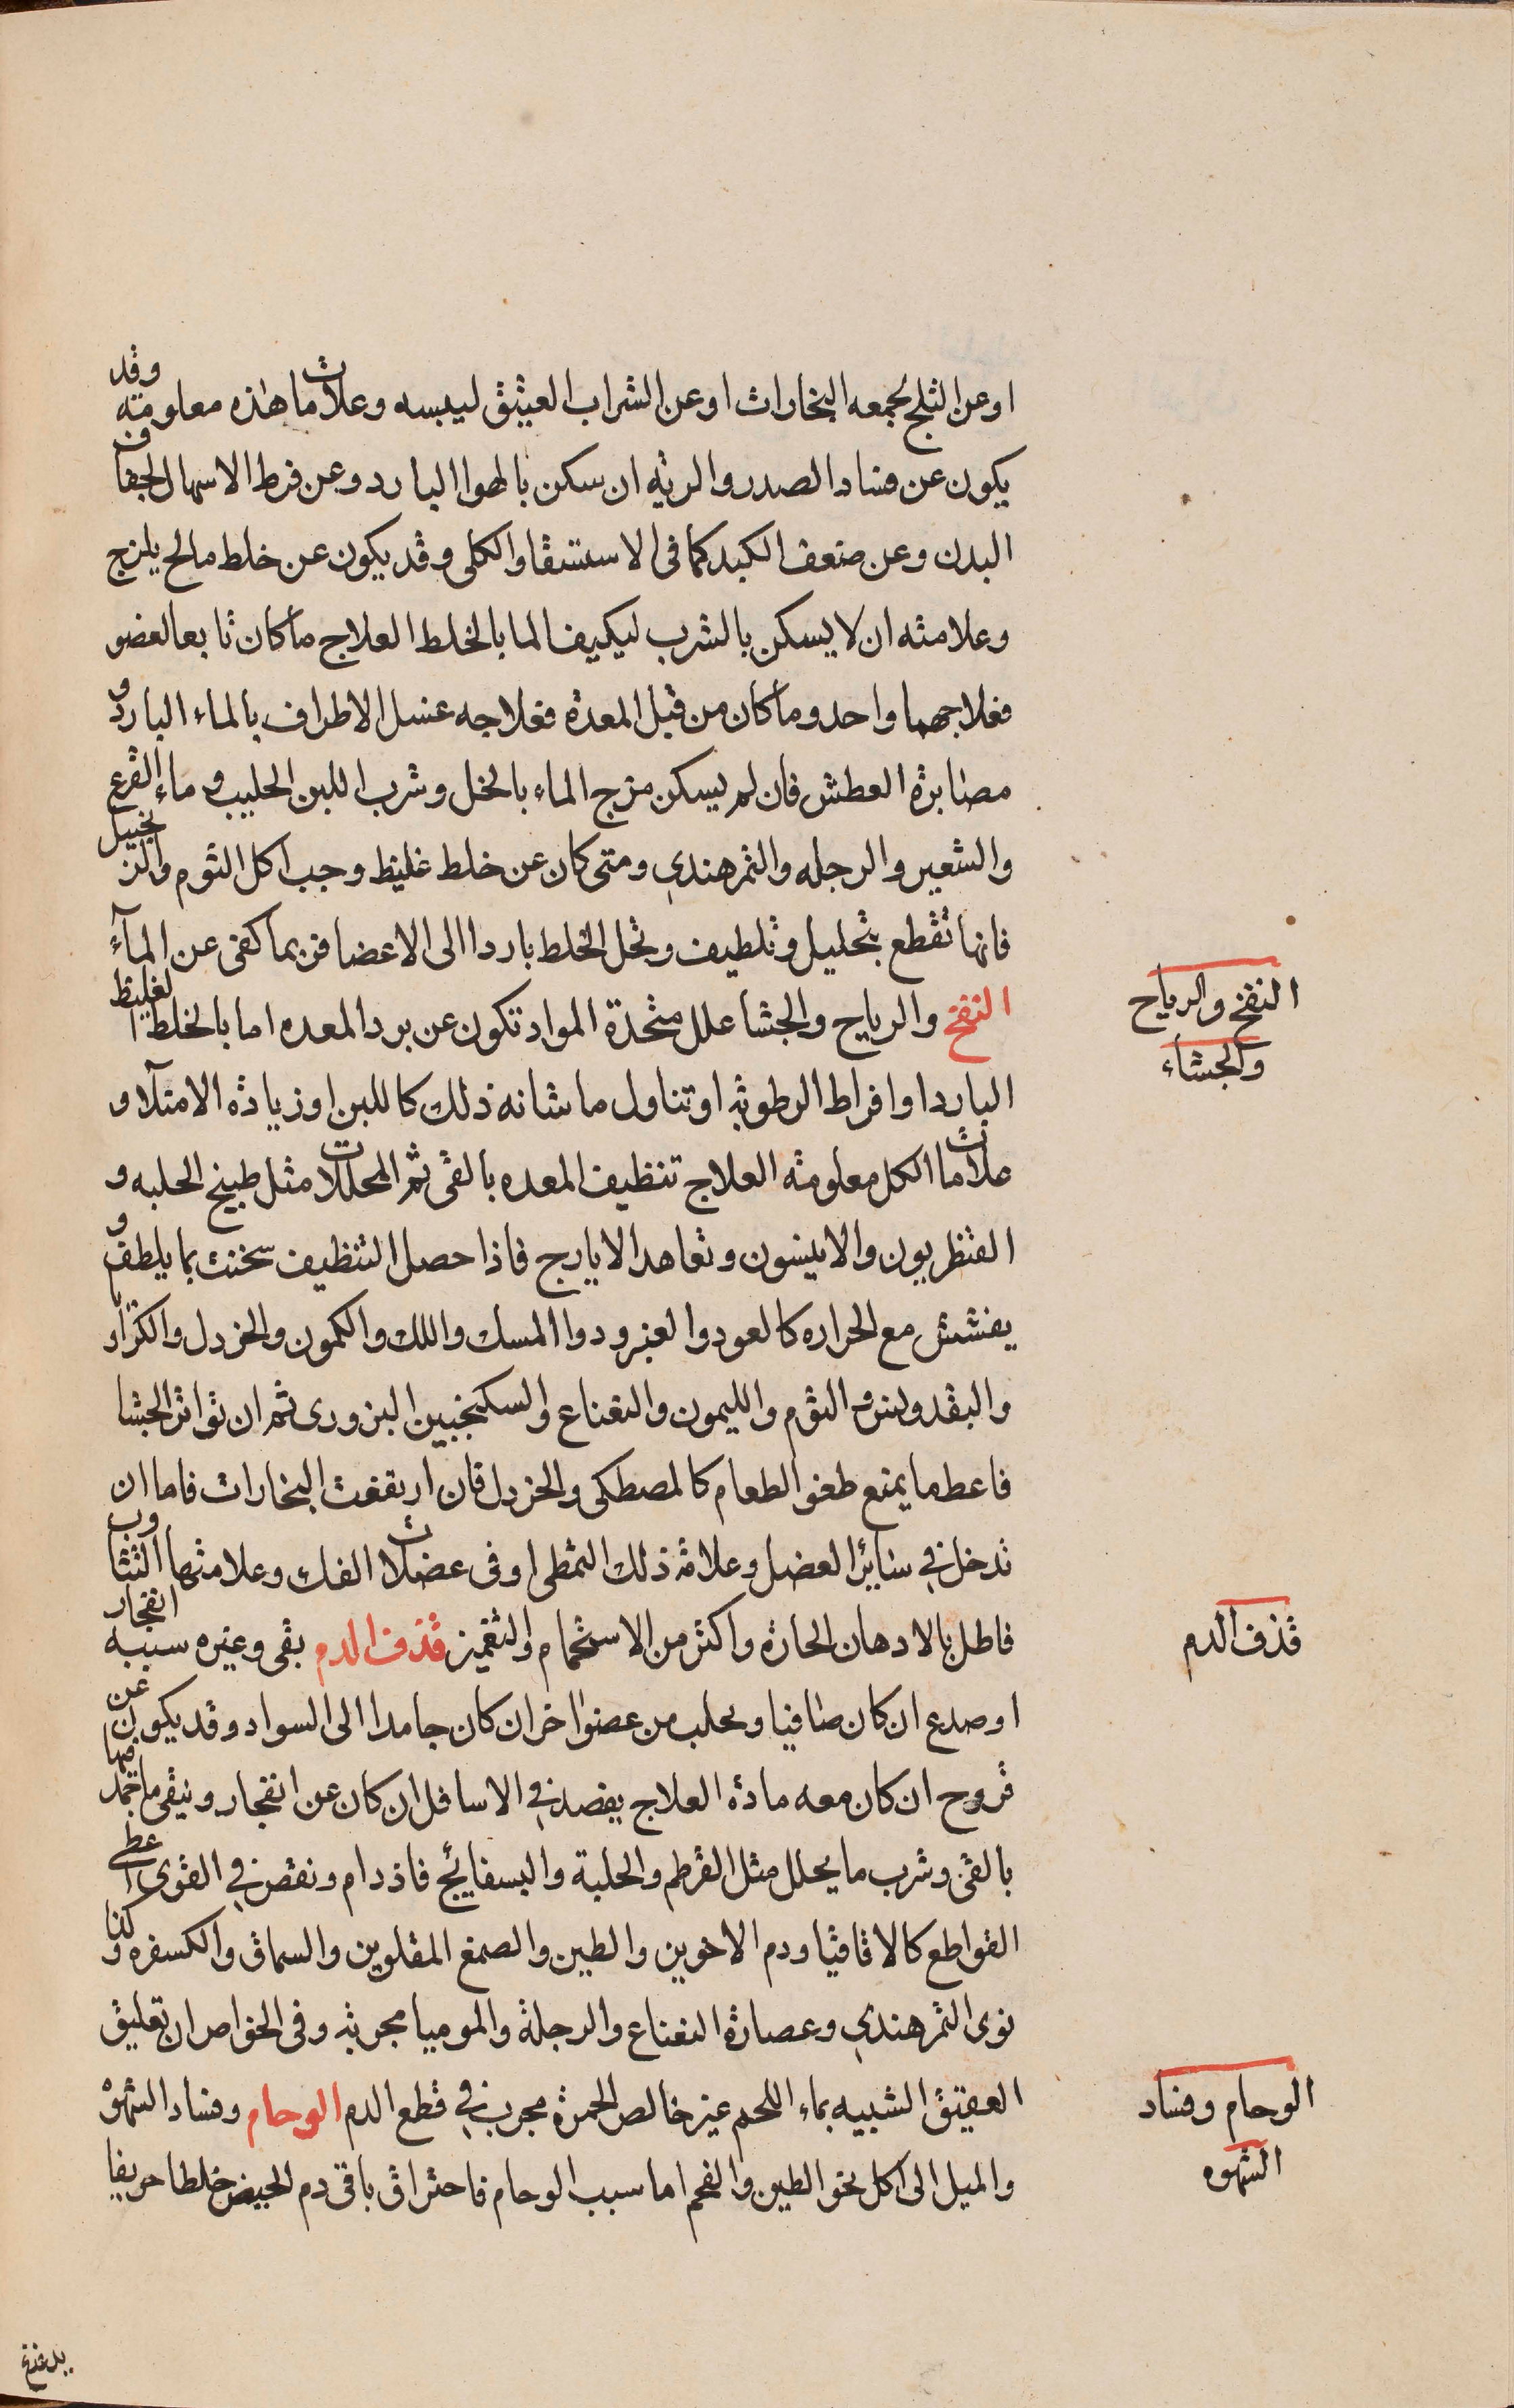 او عن الثلج لجمعه البخارات او عن الشراب العتيق ليبسه وعلامات هذه معلومة وقد
يكون عن فساد الصدر والرئه ان سكن بالهوا البارد وعن فرط الاسهال لجفاف
البدن وعن ضعف الكبد كما فى الاستسقا والكلى وقد يكون عن خلط مالح يلزج
وعلامته ان لا يسكن بالشرب ليكيف الما بالخلط العلاج ما كان تابعا لعضو
فعلاجهما واحد وما كان من قبل المعدة فعلاجه غسل الاطراف بالماء البارد و
مصابرة العطش فان لم يسكن مزج الماء بالخل وشرب اللبن الحليب وماء القرع
والشعير والرجله والتمر هندي ومتى كان عن خلط غليظ وجب اكل الثوم والزنجبيل
فانها تقطع بتحليل وتلطيف وتحل الخلط باردا الى الاعضا فربما كفى عن المآء
النفخ والرياح والجشا علل متحدة المواد تكون عن برد المعده اما بالخلط الغليظ
البارد او افراط الرطوبة او تناول ما شانه ذلك كاللبن او زيادة الامتلآ و
علامات الكل معلومة العلاج تنظيف المعده بالقى ثم المحللات مثل طبيخ الحلبه و
القنطريون والانيسون وتعاهد الايارج فاذا حصل التنظيف سخنت بما يلطف و
يفشش مع الحراره كالعود والعنبر ودوا المسك واللك والكمون والخردل والكراويا
والبقدونس والثوم والليمون والنعناع والسكنجبين البزورى ثم ان تواتر الجشا
فاعط ما يمنع طفو الطعام كالمصطكى والخردل فان ارتفعت البخارات فاما ان
تدخل في سائر العضل وعلامة ذلك التمطى او فى عضلات الفك وعلامتها التثاوب
فاطل بالادهان الحارة واكثر من الاستحمام والتغميز قذف الدم بقى وغيره سببه انفجار
او صدع ان كان صافيا وتحلب من عضو اخر ان كان جامدا الى السواد وقد يكون عن
قروح ان كان معه مادة العلاج يفصد في الاسافل ان كان عن انفجار وينقى ما تجمد منها
بالقئ وشرب ما يحلل مثل القرطم والحلبة والبسفايج فاذ دام ونقص في القوى اعطى
القواطع كالاقاقيا ودم الاخوين والطين والصمغ المقلوين والسماق والكسفره وكذا
نوى التمر هندي وعصارة النعناع والرجلة والموميا مجربة وفى الخواص ان تعليق
العقيق الشبيه بماء اللحم غير خالص الحمرة مجرب في قطع الدم الوحام وفساد الشهوة
والميل الى اكل نحو الطين والفحم اما سبب الوحام فاحتراق باقى دم الحيض خلطا حريفا
النفخ والرياح
والجشاء
قذف الدم
الوحام وفساد
الشهوه